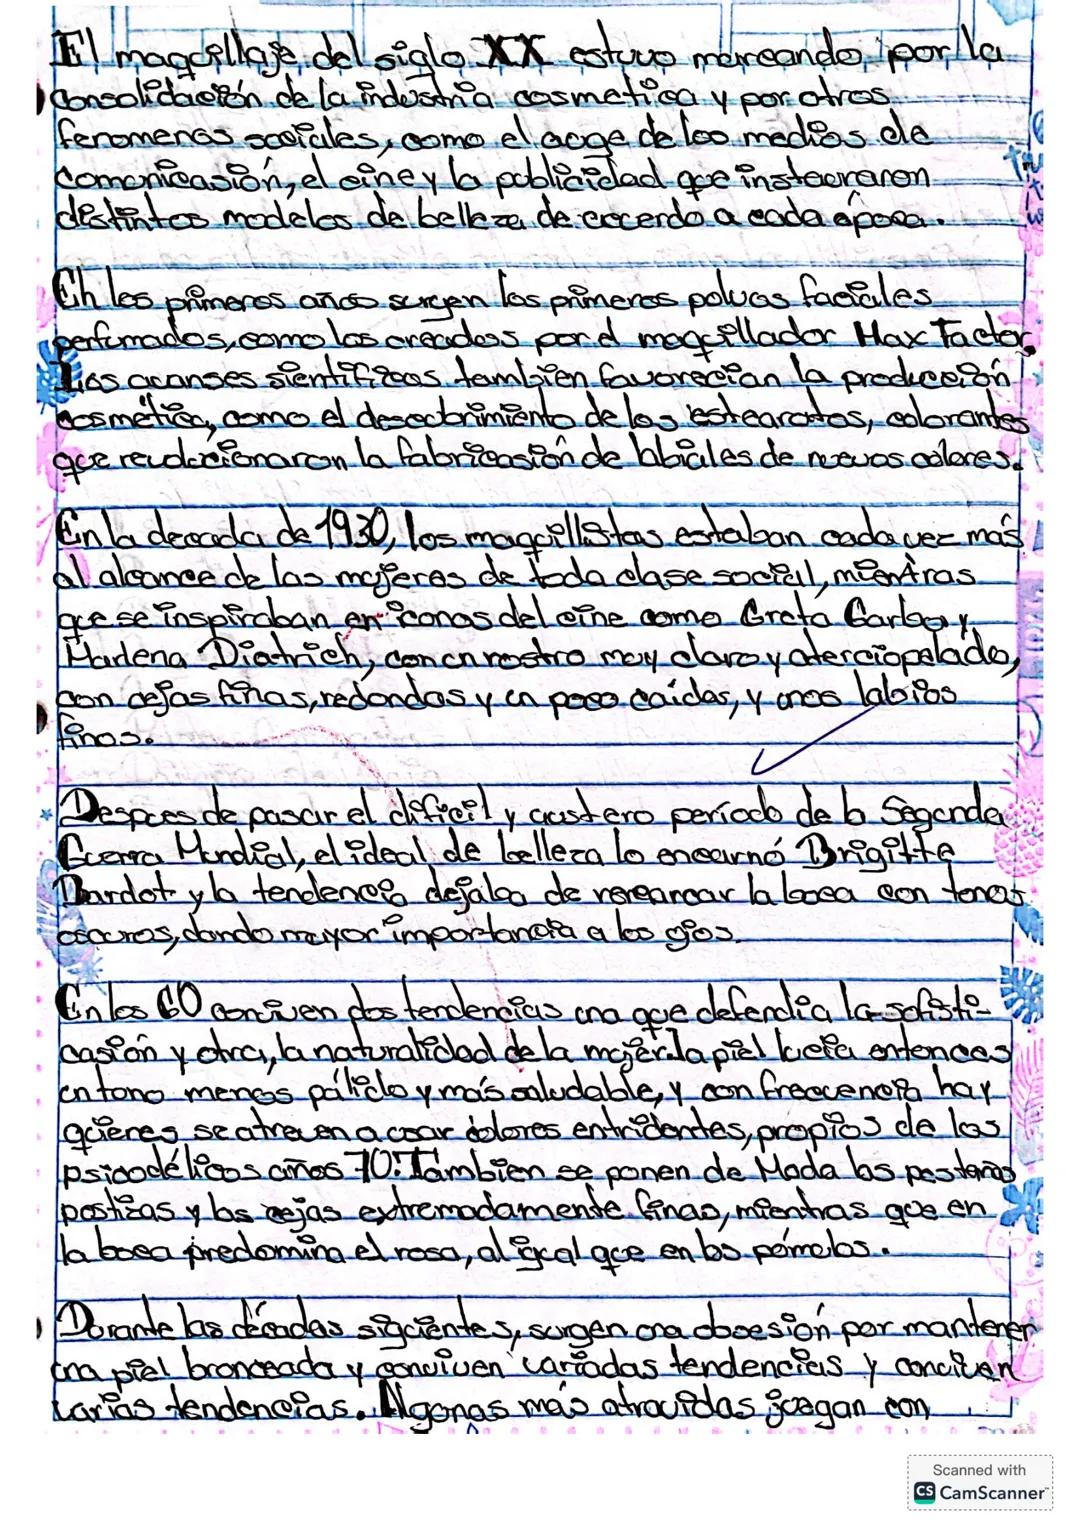 El maquillaje del siglo XX estuvo mercando, por la
consolidación de la industria cosmetica y por otros
fenomenos sociales, como el auge de los medios de
comunicasión, el cine y la publicidad que instauraron
distintos modelos de belleza de acuerdo a cada época.
En los primeros años surgen los primeros polvos faciales
perfumados, como los creados por el maquillador Max Factor.
Los avanses sientificos tambien favorecian la producción
cosmética, como el descubrimiento de los estearatos, colorantes
que revolucionaron la fabricasión de labiales de nuevos colores.
En la decada de 1930, los maquillistas estaban cada vez más
al alcance de las mujeres de toda clase social, mientras
que se inspiraban en iconos del cine como Greta Garbo y
Marlena Diatrich, con un rostro muy claro y aterciopelado,
con cejas finas, redondas y un poco caídas, y unos labios
finos.
Despues de pasar el dificil y austero período de la Segunda
Guerra Mundial, el ideal de belleza lo encarnó Brigitte
Bardot y la tendencia dejaba de remarcar la boca con tonos
oscuros, dando mayor importancia a los ojos.
En los 60 conviven dos tendencias una que defendia la sofisti-
casión y otra, la naturalidad de la mujer. la piel lucia entonces
un tono menos pálido y más saludable, y con frecuencia hay
quienes se atreven a usar colores entridentes, propios de los
psicodélicos años 70. Tambien se ponen de Moda las pestañas
postizas y las cejas extremadamente finas, mientras que en
la boca predomina el rosa, al igual que en los pómulos.
Durante las décadas siguientes, surgen una obsesión por mantener
una piel bronceada y conviven variadas tendencias y conviven
varias tendencias. Algunas más atrevidas juegan con
Scanned with
CS CamScanner